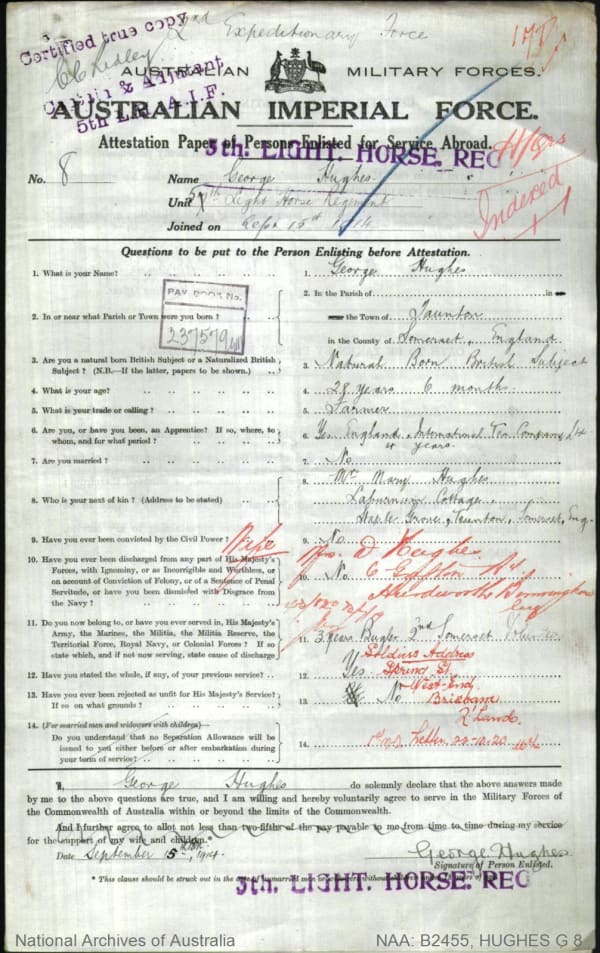 2nd Expeditionary Force
Certified true copy
C C Ridley
Captain & Adjutant
5th L.H. A.I.F.
AUSTRALIAN MILITARY FORCES.
AUSTRALIAN IMPERIAL FORCE.
Attestation Paper of Persons Enlisted for Service Abroad.
5th. LIGHT. HORSE. REG
Indexed
No. 8 Name George Hughes
Unit 5th Light Horse Regiment
Joined on Sept 15th 1914
Questions to be put to the Person Enlisting before Attestation.
1. What is your Name? 1. George Hughes
PAY BOOK No.
237579
2. In or near what Parish or Town were you born? 2. In the Parish of in
the Town of Taunton
in the County of Somerset, England
3. Are you a natural born British Subject or a Naturalized British
Subject? (N.B.—If the latter, papers to be shown) 3. Natural Born British Subject
4. What is your age? 4. 28 years 6 months
5. What is your trade or calling? 5. Farmer
6. Are you, or have you been, an Apprentice? If so, where, to
whom, and for what period? 6. Yes England, International Tea Company Ltd
4 years.
7. Are you married? 7. No
8. Who is your next of kin? (Address to be stated) 8. Mary Hughes
Laburnum Cottage,
Staple Grove, Taunton, Somerset, Eng.
9. Have you ever been convicted by the Civil Power? 9. No
Wife Mrs. D Hughes
6 Grafton Rd
Handsworth Birmingham
Eng
10. Have you ever been discharged from any part of His Majesty's
Forces, with Ignominy, or as Incorrigible and Worthless, or
on account of Conviction of Felony, or of a Sentence of Penal
Servitude, or have you been dismissed with Disgrace from
the Navy? 10. No
11. Do you now belong to, or have you ever served in, His Majesty's
Army, the Marines, the Militia, the Militia Reserve, the
Territorial Force, Royal Navy, or Colonial Forces? If so
state which, and if not now serving, state cause of discharge 11. 3 years Bugler 2nd Somerset Volunteers
Soldiers Address
Spring St
West-End
Brisbane
Q'Land.
12. Have you stated the whole, if any, of your previous service? 12. Yes
13. Have you ever been rejected as unfit for His Majesty's Service?
If so on what grounds? 13. No
14. (For married men and widowers with children)—
Do you understand that no Separation Allowance will be
issued to you either before or after embarkation during
your term of service? 14.
Letter 20-10-20
I, George Hughes do solemnly declare that the above answers made
by me to the above questions are true, and I am willing and hereby voluntarily agree to serve in the Military Forces of
the Commonwealth of Australia within or beyond the limits of the Commonwealth.
And I further agree to allot not less than two-fifths of the pay payable to me from time to time during my service
for the support of my wife and children.*
Date September 15th, 1914. George Hughes
Signature of Person Enlisted.
5th. LIGHT. HORSE. REG
National Archives of Australia NAA: B2455, HUGHES G 8